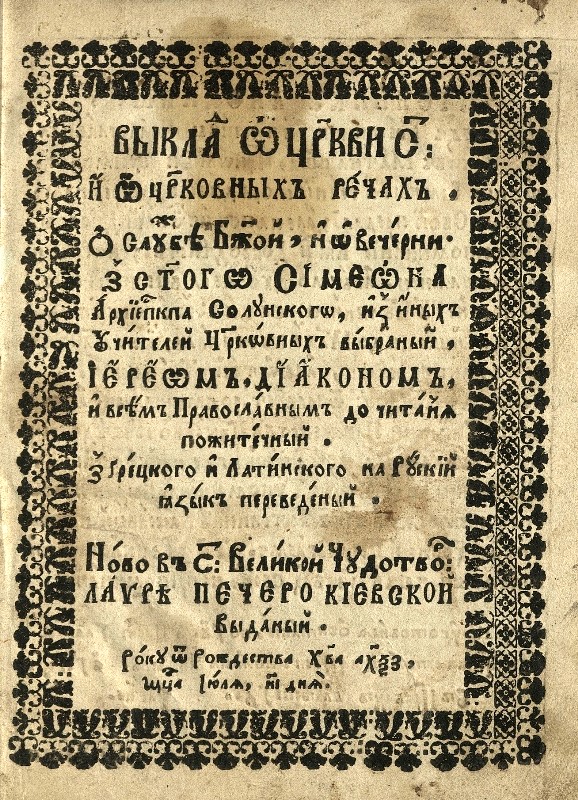 ВЫКЛАⷣ Ѡ҆ ЦР҃КВИ Сⷮ:
И҆ Ѡ҆ ЦР҃КОВНЫХЪ РЕ́ЧАХЪ.
Ѻ҆ Слꙋⷤбѣ Бж҃ой, и҆ ѡ҆ вече́рни.
Ꙁ҆ СТ҃ОГѠ СІМЕѠ́НА
Архїеп҃кпа Солꙋнскогѡ, и҆ꙁ̾ и҆ныхъ
Ꙋ҆чи́телей Цр҃кѡ́вныхъ выбраный,
І҆ЕРЕ́ѠМЪ, ДІА҆́КОНОМЪ,
и҆ всѣ́мъ Правосла́внымъ до чита́нїѧ
пожите́чный.
Ꙁ҆ Гре́цкого и҆ Лати́нского на Рꙋ́скїй
ꙗ҆ꙁы́къ переведе́ный.
Но́во въ Сⷮ: Вели́кой Чꙋдотво́ⷬ:
ЛА́ѴРѢ ПЕЧЕРО КІЕВСКОЙ
Выда́ный.
Ро́кꙋ ѿ Рождества Хв҃а ахѯꙁ,
Мцⷭ҇а Іюлѧ, иі днѧ̀.